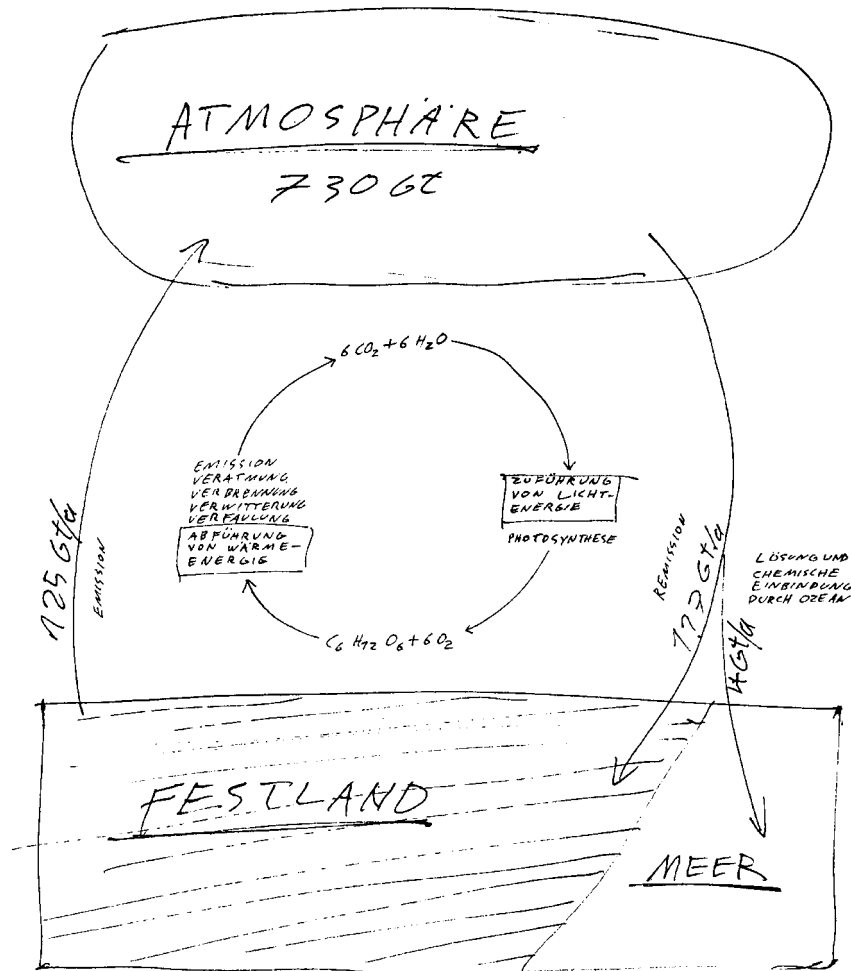 ATMOSPHÄRE
730 Gt
6 CO₂ + 6 H₂O
EMISSION
VERATMUNG
VERBRENNUNG
VERWITTERUNG
VERFAULUNG
ABFÜHRUNG
VON WÄRME-
ENERGIE
ZUFÜHRUNG
VON LICHT-
ENERGIE
PHOTOSYNTHESE
C₆ H₁₂ O₆ + 6 O₂
125 Gt/a
EMISSION
REMISSION
117 Gt/a
4 Gt/a
LÖSUNG UND
CHEMISCHE
EINBINDUNG
DURCH OZEAN
FESTLAND
MEER